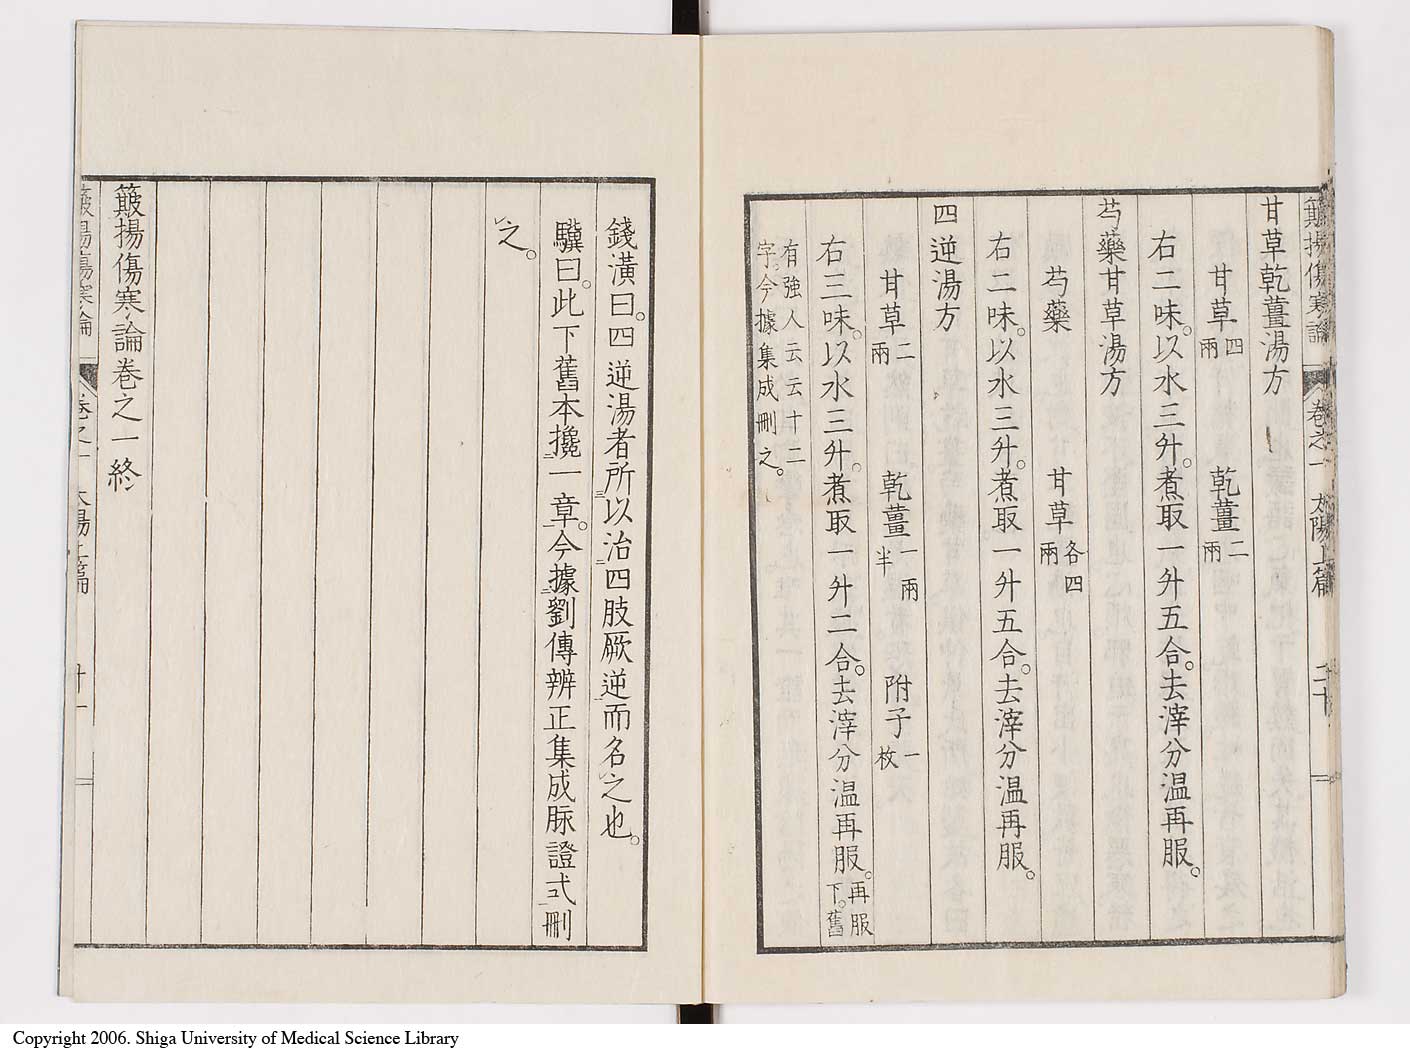 簸揚傷寒論 卷之一 太陽上篇 二十
甘草乾薑湯方
甘草四兩 乾薑二兩
右二味。以水三升。煮取一升五合。去滓分温再服。
芍藥甘草湯方
芍藥 甘草各四兩
右二味。以水三升。煮取一升五合。去滓分温再服。
四逆湯方
甘草二兩 乾薑一兩半 附子一枚
右三味。以水三升。煮取一升二合。去滓分温再服。再服下。舊
有強人云云十二
字。今據集成刪之。
錢潢曰。四逆湯者所以治四肢厥逆而名之也。
驥曰。此下舊本攙一章。今據劉傳辨正集成脉證式刪
之。
簸揚傷寒論卷之一終
簸揚傷寒論 卷之一 太陽上篇 廿一
Copyright 2006. Shiga University of Medical Science Library